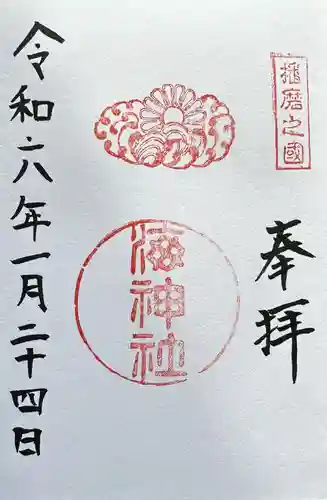 播磨之國
奉拝
海神社
令和六年一月二十四日